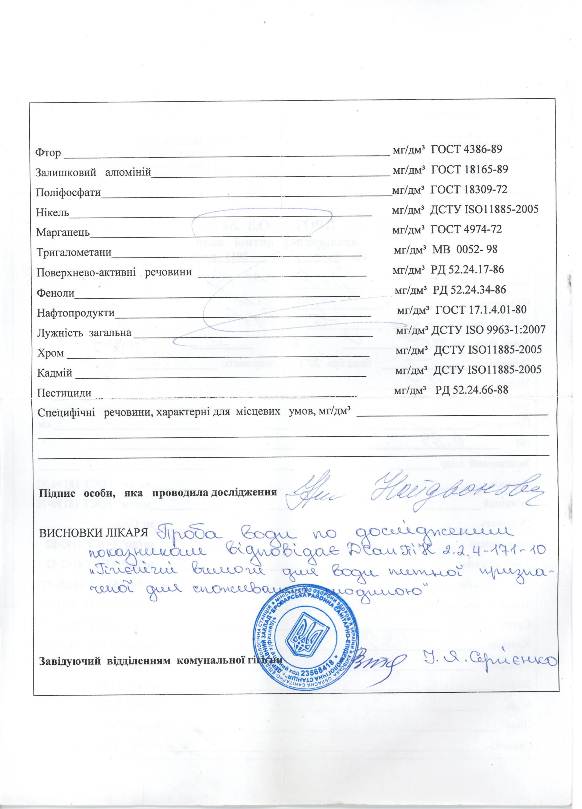 Фтор мг/дм³ ГОСТ 4386-89
Залишковий алюміній мг/дм³ ГОСТ 18165-89
Поліфосфати мг/дм³ ГОСТ 18309-72
Нікель мг/дм³ ДСТУ ISO11885-2005
Марганець мг/дм³ ГОСТ 4974-72
Тригалометани мг/дм³ МВ 0052- 98
Поверхнево-активні речовини мг/дм³ РД 52.24.17-86
Феноли мг/дм³ РД 52.24.34-86
Нафтопродукти мг/дм³ ГОСТ 17.1.4.01-80
Лужність загальна мг/дм³ ДСТУ ISO 9963-1:2007
Хром мг/дм³ ДСТУ ISO11885-2005
Кадмій мг/дм³ ДСТУ ISO11885-2005
Пестициди мг/дм³ РД 52.24.66-88
Специфічні речовини, характерні для місцевих умов, мг/дм³
Підпис особи, яка проводила дослідження
ВИСНОВКИ ЛІКАРЯ Проба води по дослідженим
показникам відповідає ДСанПіН 2.2.4-171-10
"Гігієнічні вимоги для води питної призна-
ченої для споживання людиною"
Завідуючий відділенням комунальної гігієни
23568418